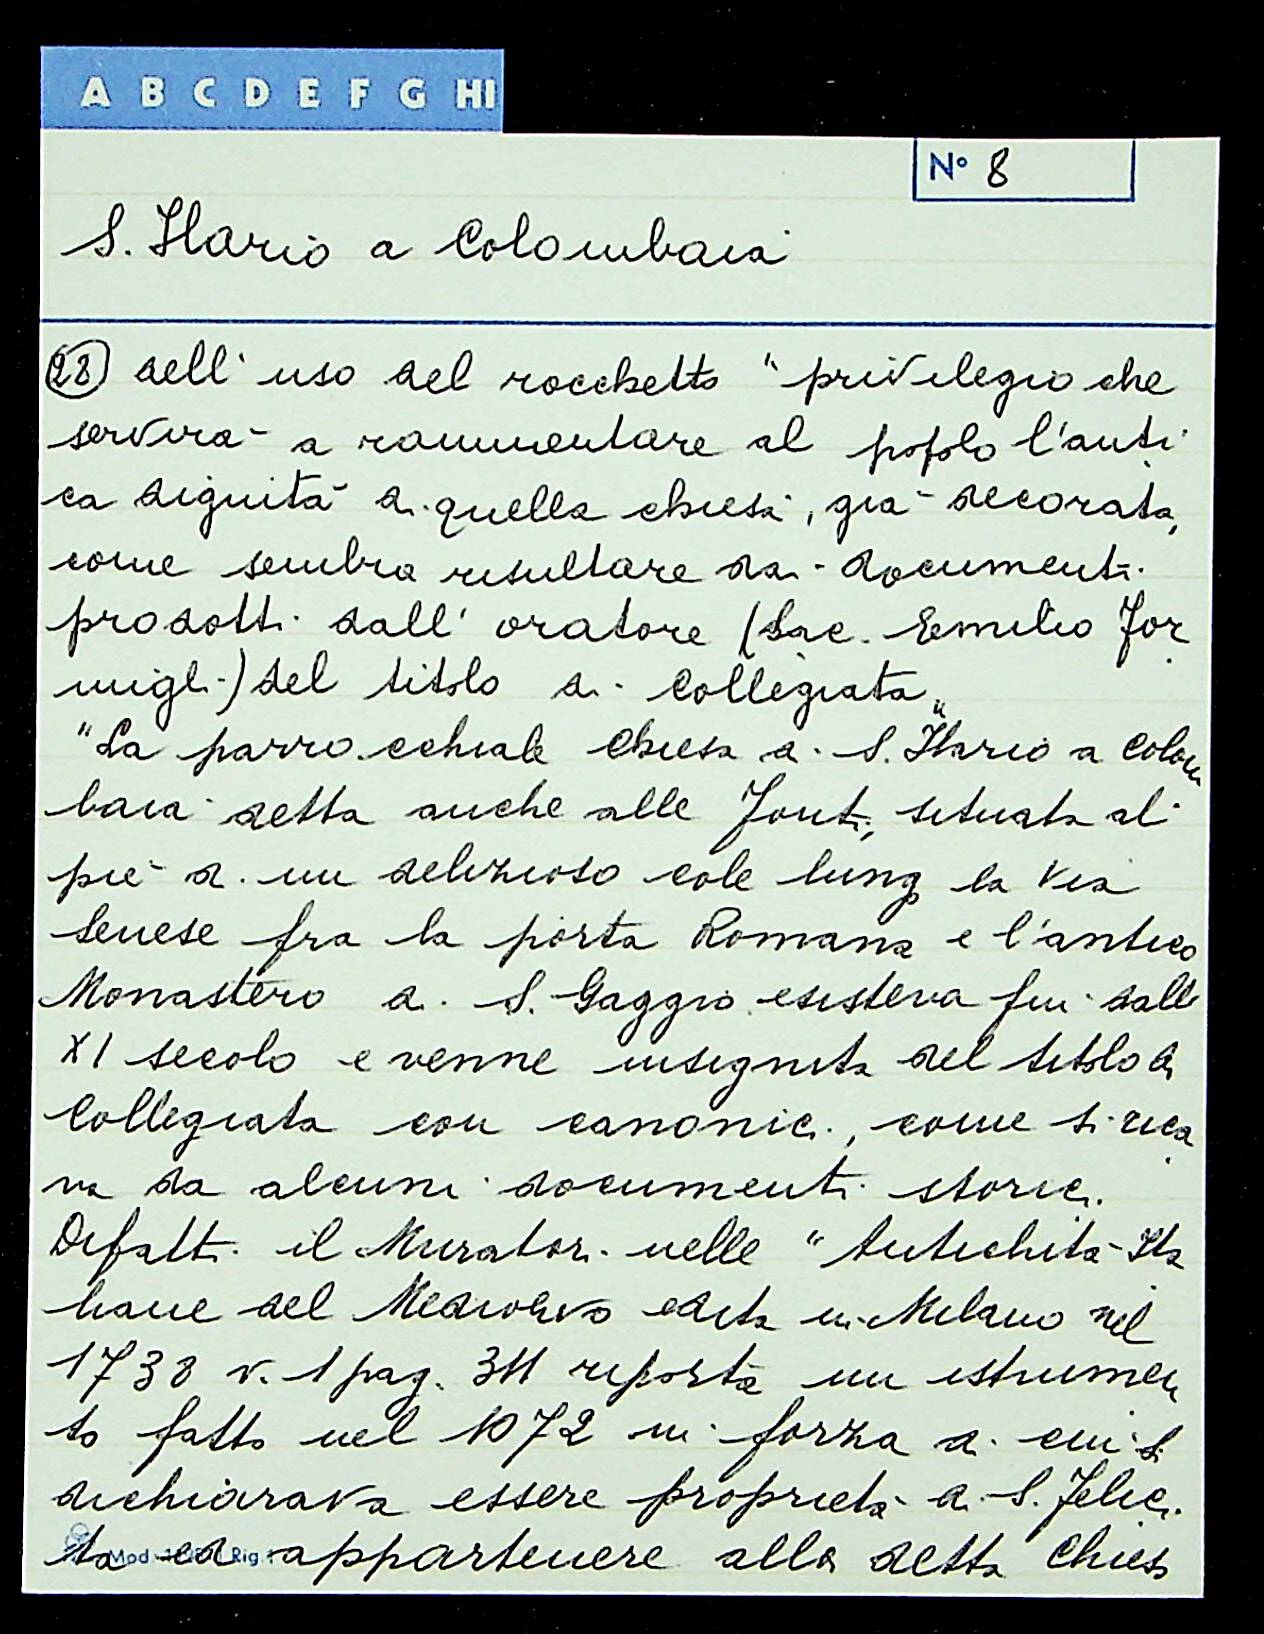 A B C D E F G HI
N° 8
S. Ilario a Colombaia
(28) dell'uso del rocchetto "privilegio che
servirà a rammentare al popolo l'anti
ca dignità di quella chiesa, già decorata,
come sembra resultare dai documenti
prodotti dall'oratore (Sac. Emilio For
migli) del titolo di Collegiata"
"La parrocchiale Chiesa di S. Ilario a Colom
baia detta anche alle Fonti, situata al
piè di un delizioso colle lungo la Via
Senese fra la porta Romana e l'antico
Monastero di S. Gaggio esisteva fin dallo
XI secolo e venne insignita del titolo di
Collegiata con canonici, come si rica
va da alcuni documenti storici.
Difatti il Muratori nelle "Antichità Ita
liane del Medioevo edita in Milano nel
1738 v. 1 pag. 311 riporta un istrumen
to fatto nel 1072 in forza di cui si
dichiarava essere proprietà di S. Felici
ta ed appartenere alla detta Chiesa
Mod. Rig.